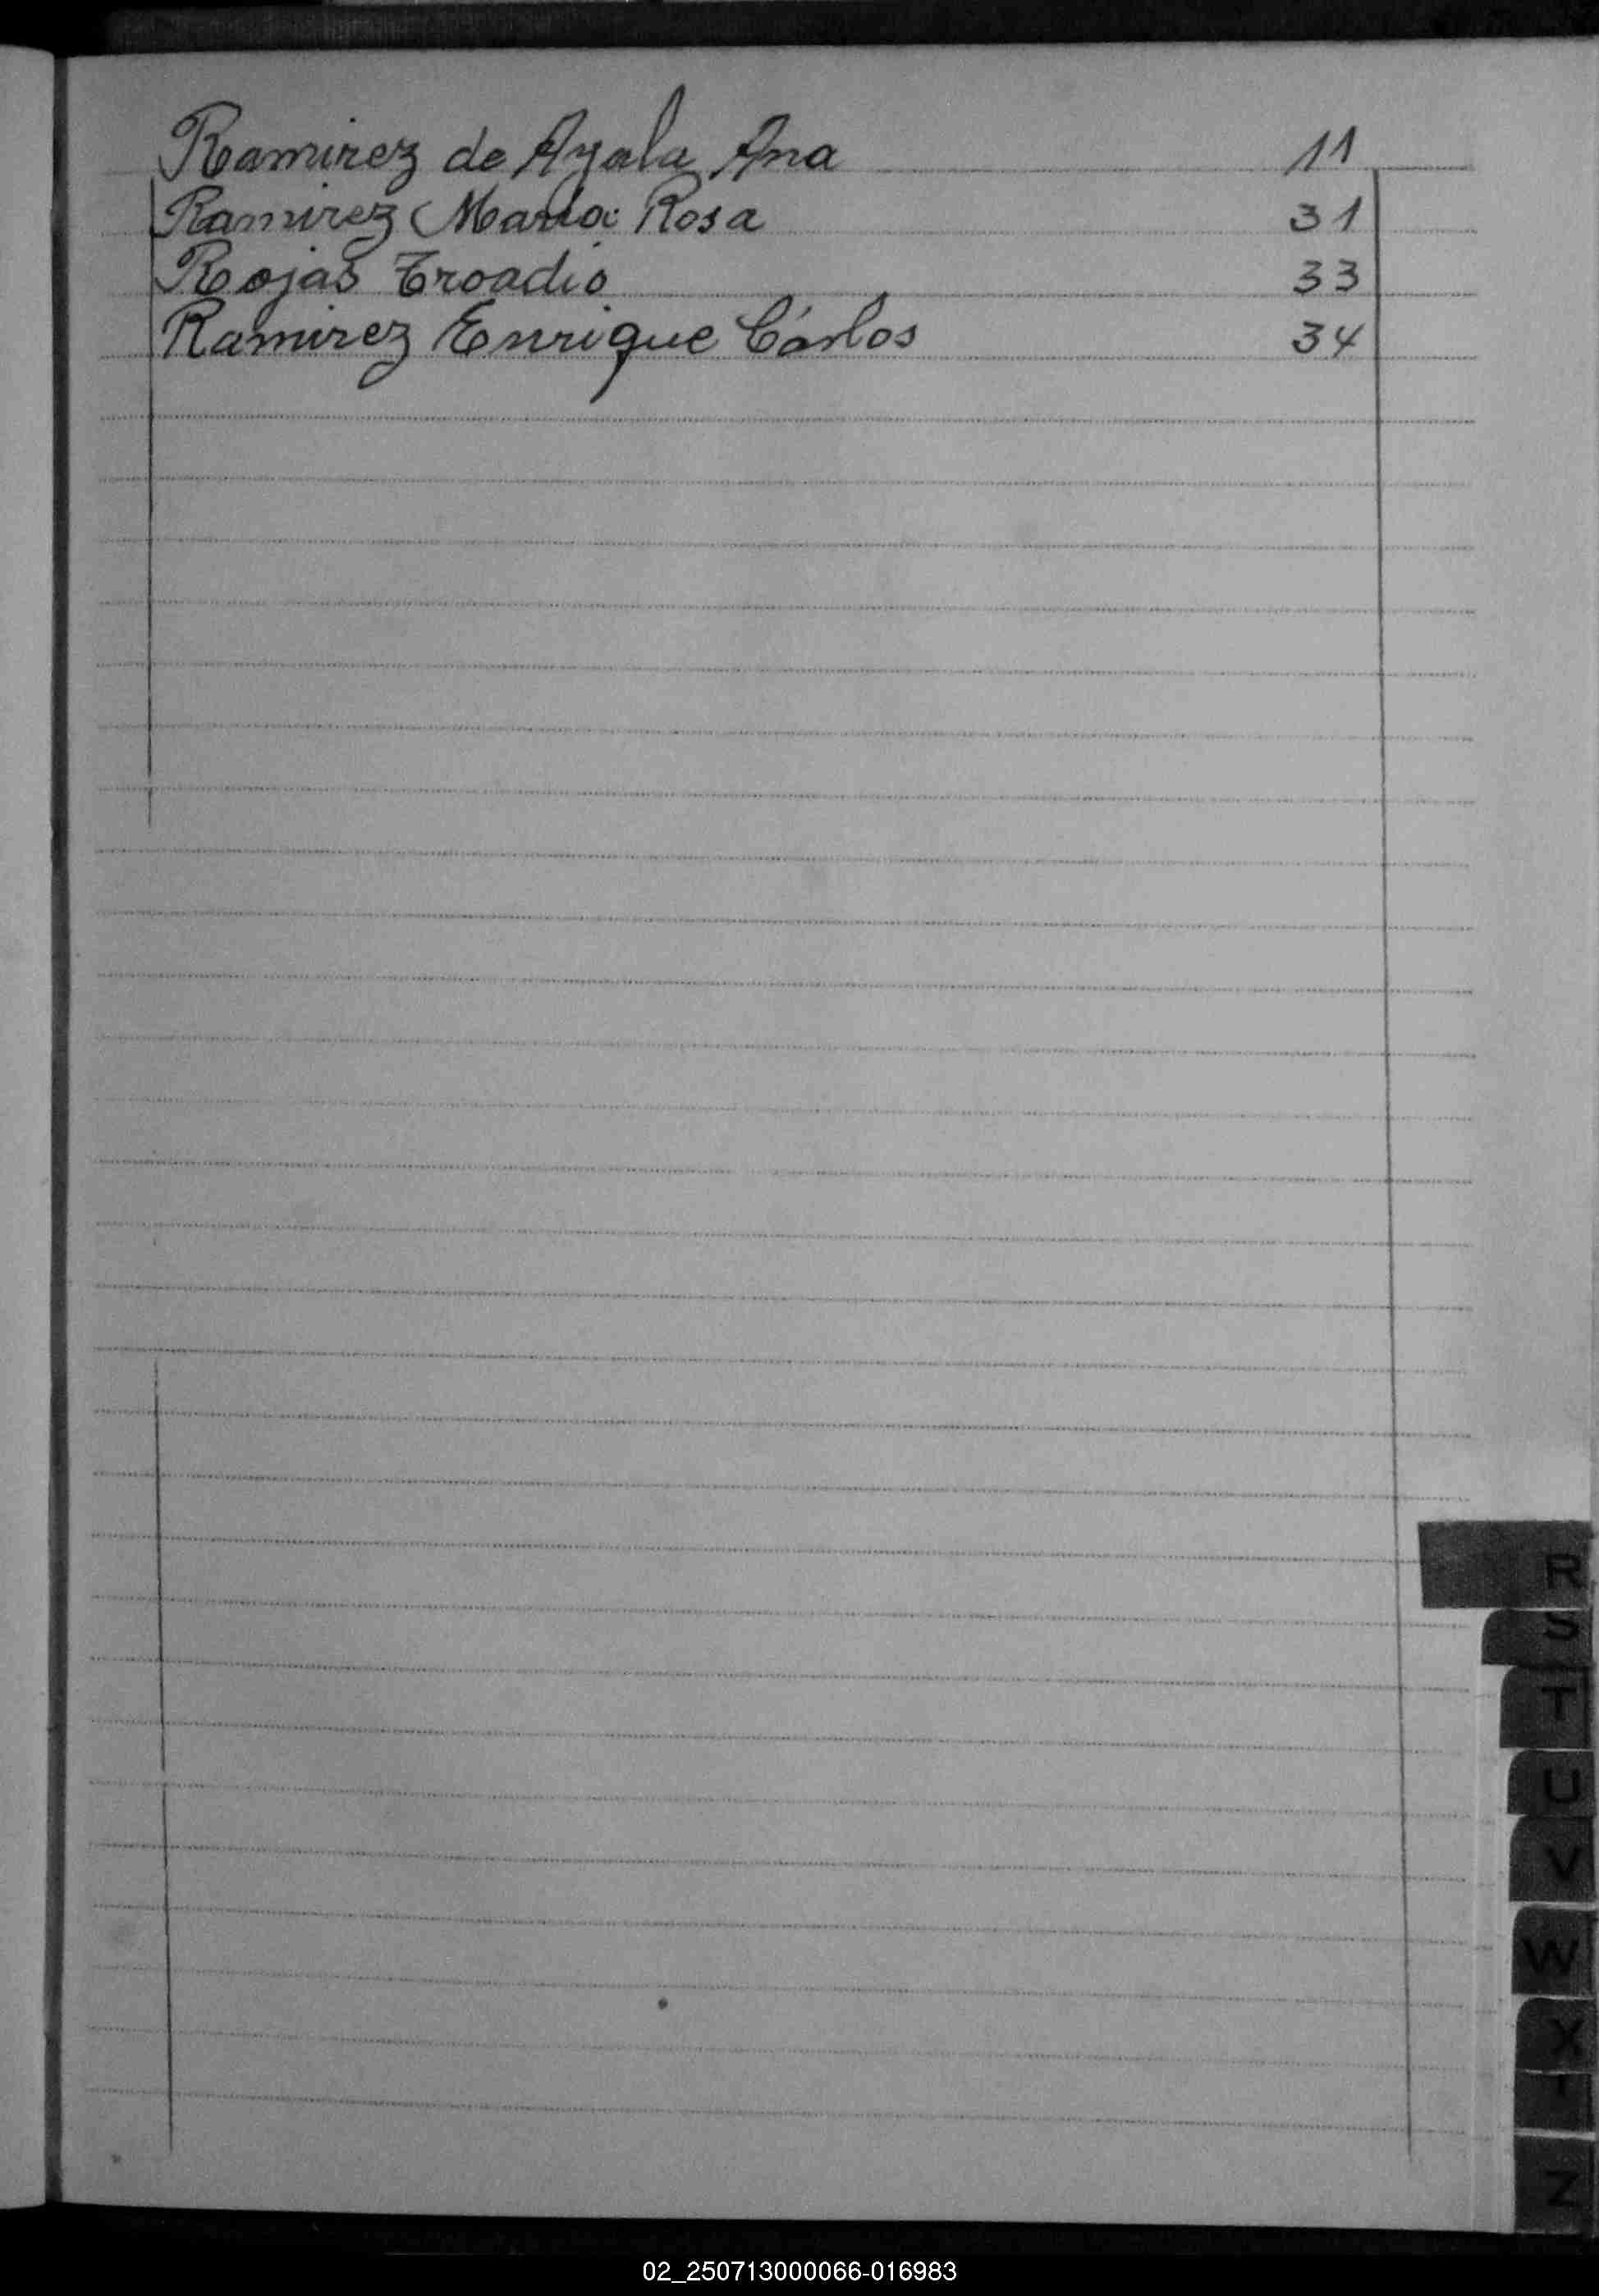 Ramirez de Ayala Ana 11
Ramirez Maria Rosa 31
Rojas Troadio 33
Ramirez Enrique Cárlos 34
R
S
T
U
V
W
X
Z
02_250713000066-016983